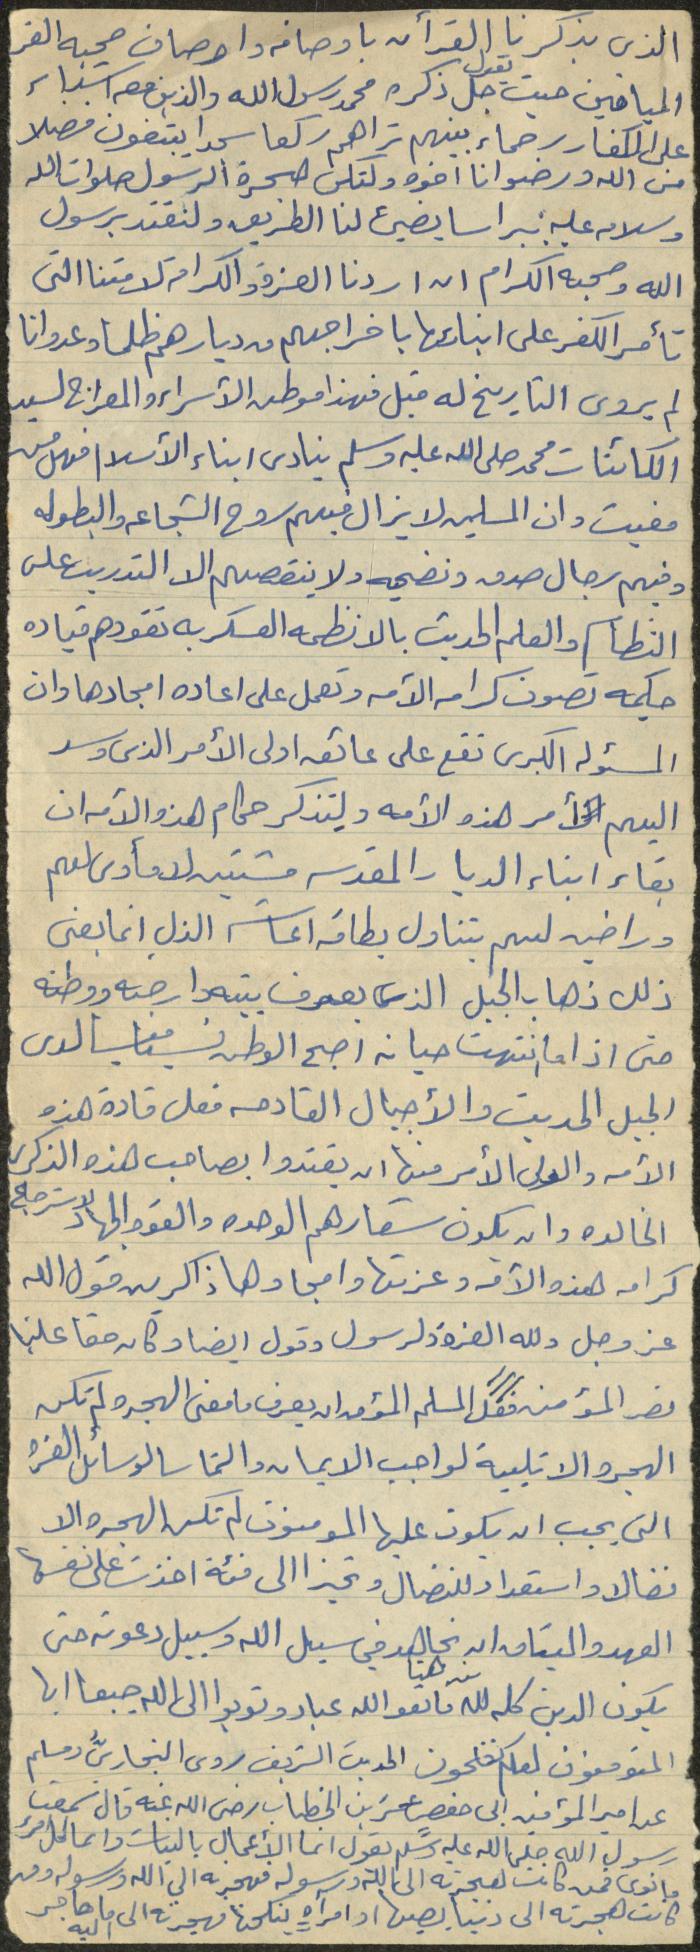 الذى يذكرنا القرأن باوصافه واوصاف صحبه الغر
الميامين حيث يقول جل ذكره محمد رسول الله والذين معه اشداء
على الكفار رحماء بينهم تراهم ركعا سجدا يبتغون فضلا
من الله ورضوانا اخوه ولتكن هجرة الرسول صلوات الله
وسلامه عليه نبراسا يضيئ لنا الطريق ولنقتد برسول
الله وصحبه الكرام ان اردنا العزة والكرامة لامتنا التى
تأمر الكفر على ابنائها باخراجهم من ديارهم ظلما وعدوانا
لم يروى التاريخ له مثيل فهذا موطن الأسراء والمعراج لسيد
الكائنات محمد صلى الله عليه وسلم ينادى ابناء الأسلام فهل من
مغيث وان المسلمين لا يزال فيهم روح الشجاعه والبطوله
وفيهم رجال صدق وتضحيه ولا ينقصهم الا التدريب على
النظام والعلم الحديث بالانظمه العسكريه تقودهم قياده
حكيمه تصون كرامه الأمه وتعمل على اعاده امجادها وان
المسئوله الكبرى تقع على عاتق اولى الأمر الذى وسد
اليهم أمر هذه الأمه وليتذكر حكام هذه الأمه ان
بقاء ابناء الديار المقدسه مشتتين لا مأوى لهم
وراضين لهم بتناول بطاقه اعاشه الذل انما يعنى
ذلك ذهاب الجيل الذى يعرف بيته وارضه ووطنه
حتى اذا ما انتهت حياته اصبح الوطن نسيا منسيا لدى
الجيل الحديث والأجيال القادمه فعلى قادة هذه
الأمه واولى الأمر منها ان يقتدوا بصاحب هذه الذكرى
الخالده وان يكون شعارهم الوحده والقوه والجهاد لاسترجاع
كرامه هذه الأمه وعزتها وامجادها ذاكرين قول الله
عز وجل ولله العزة ولرسول وقول ايضا وكان حقا علينا
نصر المؤمنين فعلى المسلم المؤمن ان يعرف ما معنى الهجره لم تكن
الهجره الا تلبية لواجب الايمان والتماسا لوسائل العزه
التى يجب ان يكون عليها المومنون لم تكن الهجره الا
نضالا واستعدادا للنضال وتحيزا الى فئة اخذت على نفسها
العهد والميثاق ان نجاهد في سبيل الله وسبيل دعوته حتى
يكون الدين كله لله من هنا فاتقوا الله عباد وتوبوا الى الله جميعا ايها
المؤمنون لعلكم تفلحون الحديث الشريف روى البخارى ومسلم
عن امير المؤمنين ابى حفص عمر بن الخطاب رضى الله عنه قال سمعت
رسول الله صلى الله عليه وسلم يقول انما الأعمال بالنيات وانما لكل امرئ
ما نوى فمن كانت هجرته الى الله ورسوله فهجرته الى الله ورسوله ومن
كانت هجرته الى دنيا يصيبها او امرأه ينكحها فهجرته الى ما هاجر اليه